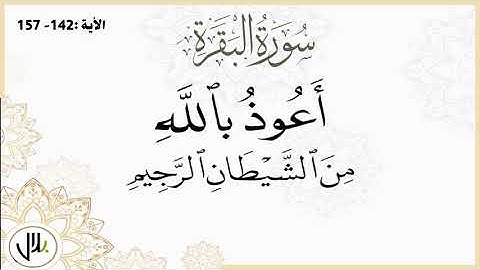 الأية :142- 157
سُورَةُ البَقَرَةِ
أَعُوذُ بِٱللَّهِ
مِنَ ٱلشَّيْطَانِ ٱلرَّجِيمِ
بلال